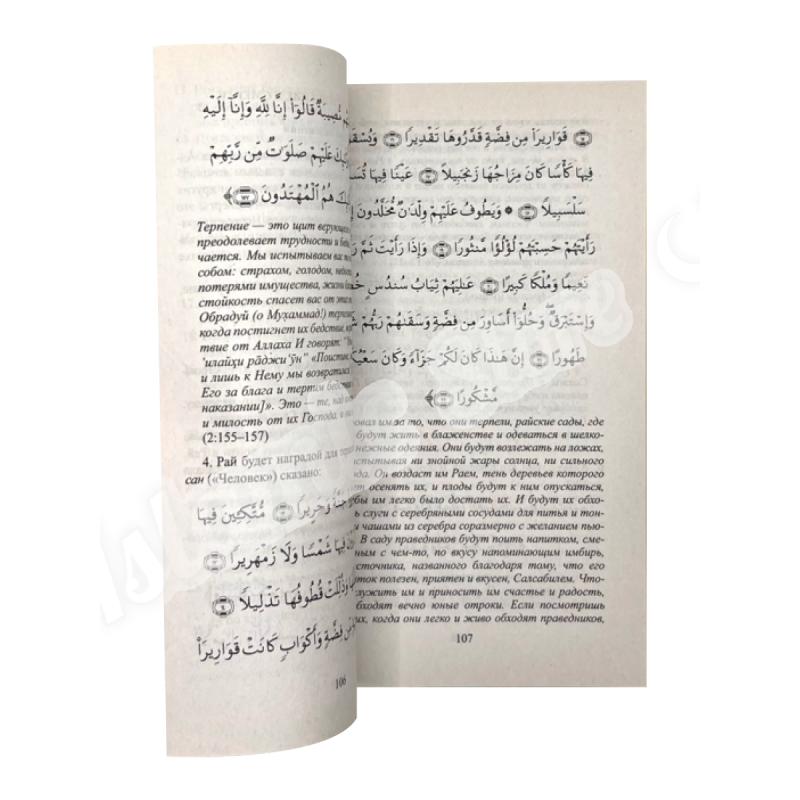 مُّصِيبَةٌ قَالُوٓا۟ إِنَّا لِلَّهِ وَإِنَّآ إِلَيْهِ
عَلَيْهِمْ صَلَوَٰتٌ مِّن رَّبِّهِمْ
هُمُ ٱلْمُهْتَدُونَ ﴿١٥٧﴾
Терпение — это щит верующе
преодолевает трудности и беды
чается. Мы испытываем вас
собом: страхом, голодом, недо
потерями имущества, жизни
стойкость спасет вас от
Обрадуй (о Мух̣аммад!) терпел
когда постигнет их бедствие,
твие от Аллаха И говорят: "Ин
'илайҳи рāджи'ӯн" «Поистине,
и лишь к Нему мы возвратим
Его за блага и терпим бедст
наказании]». Это — те, над
и милость от их Господа, и
(2:155–157)
4. Рай будет наградой для терп
сан («Человек») сказано:
جَنَّةً وَحَرِيرًا ﴿١٢﴾ مُّتَّكِـِٔينَ فِيهَا
فِيهَا شَمْسًا وَلَا زَمْهَرِيرًا ﴿١٣﴾
وَذُلِّلَتْ قُطُوفُهَا تَذْلِيلًا ﴿١٤﴾
مِّن فِضَّةٍ وَأَكْوَابٍ كَانَتْ قَوَارِيرَا۠
106
﴿١٥﴾ قَوَارِيرَا۟ مِن فِضَّةٍ قَدَّرُوهَا تَقْدِيرًا ﴿١٦﴾ وَيُسْقَوْ
فِيهَا كَأْسًا كَانَ مِزَاجُهَا زَنجَبِيلًا ﴿١٧﴾ عَيْنًا فِيهَا تُسَ
سَلْسَبِيلًا ﴿١٨﴾ ۞ وَيَطُوفُ عَلَيْهِمْ وِلْدَٰنٌ مُّخَلَّدُونَ إِ
رَأَيْتَهُمْ حَسِبْتَهُمْ لُؤْلُؤًا مَّنثُورًا ﴿١٩﴾ وَإِذَا رَأَيْتَ ثَمَّ رَأَ
نَعِيمًا وَمُلْكًا كَبِيرًا ﴿٢٠﴾ عَـٰلِيَهُمْ ثِيَابُ سُندُسٍ خُضْ
وَإِسْتَبْرَقٌ ۖ وَحُلُّوٓا۟ أَسَاوِرَ مِن فِضَّةٍ وَسَقَىٰهُمْ رَبُّهُمْ شَ
طَهُورًا ﴿٢١﴾ إِنَّ هَـٰذَا كَانَ لَكُمْ جَزَآءً وَكَانَ سَعْيُكُ
مَّشْكُورًا ﴿٢٢﴾
овал им за то, что они терпели, райские сады, где
будут жить в блаженстве и одеваться в шелко-
нежные одеяния. Они будут возлежать на ложах,
спытывая ни знойной жары солнца, ни сильного
да. Он воздаст им Раем, тень деревьев которого
т осенять их, и плоды будут к ним опускаться,
бы им легко было достать их. И будут их обхо-
ь слуги с серебряными сосудами для питья и тон-
и чашами из серебра соразмерно с желанием пью-
В саду праведников будут поить напитком, сме-
ным с чем-то, по вкусу напоминающим имбирь,
сточника, названного благодаря тому, что его
ток полезен, приятен и вкусен, Салсабилем. Что-
лужить им и приносить им счастье и радость,
бходят вечно юные отроки. Если посмотришь
их, когда они легко и живо обходят праведников,
107